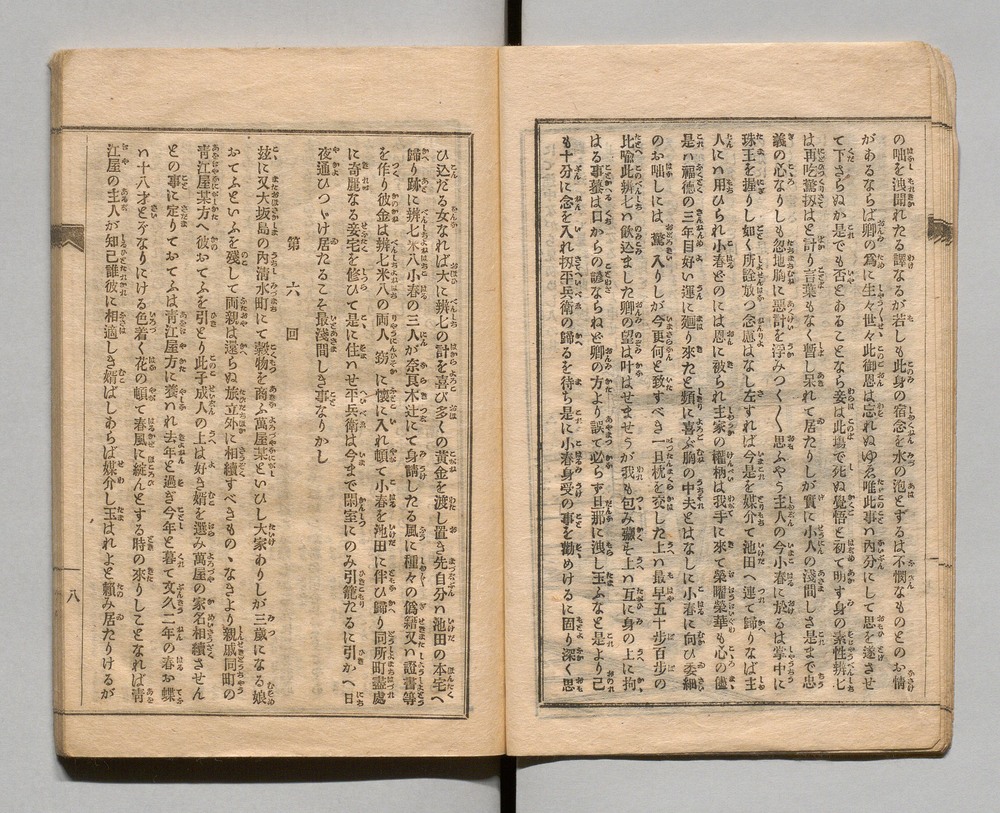 の咄を洩聞れたる譯なるが若しも此身の宿念を水の泡とするは不憫なものとのお情
があるならば卿の爲に生々世々此御恩は忘れぬゆゑ唯此事ハ內分にして思を遂させ
て下さらぬか是でも否とあることなら妾は此塲で死ぬ覺悟と初て明す身の素性辨七
は再吃驚扨はと計り言葉もなく暫し呆れて居たりしが實に小人の淺間しさ是まで忠
義の心なりしも忽地胸に惡計を浮みつく〲思ふやう主人の今小春に於るは掌中に
珠玉を握りし如く所詮放つ念慮はなし左すれば今是を媒介て池田へ連て歸りなば主
人にハ用ひられ小春どのには恩に被られ主家の權柄は我手に來て榮曜榮華も心の儘
是ハ福德の三年目好い運に廻り來たと頻に喜ぶ胸の中夫とはなしに小春に向ひ委細
のお咄しには驚入りしが今更何と致すべき一旦枕を交した上ハ最早五十步百步の
比喩此辨七ハ飮込ました卿の望は叶はせませうが我も包み藏す上ハ互に身の上に拘
はる事蟇は口からの諺ならねど卿の方より誤て必らず旦那に洩し玉ふなと是より己
も十分に念を入れ扨平兵衛の歸るを待ち是に小春身受の事を勸めけるに固り深く思
ひ込だる女なれば大に辨七の計を喜び多くの黃金を渡し置き先自分ハ池田の本宅へ
歸り跡に辨七米八小春の三人が奈良木辻にて身請したる風に種々の僞籍又ハ證書等
を作り彼金は辨七米八の兩人窃に懷に入れ頓て小春を池田に伴ひ歸り同所町盡處
に奇麗なる妾宅を修ひて是に住ハせ平兵衛は今まで閑室にのみ引籠たるに引かへ日
夜通ひつゞけ居たるこそ最淺間しき事なりかし
第六回
玆に又大坂島の內淸水町にて穀物を商ふ萬屋某といひし大家ありしが三歲になる娘
おてふといふを殘して兩親は還らぬ旅立外に相續すべきものゝなきより親戚同町の
靑江屋某方へ彼おてふを引とり此子成人の上は好き婿を選み萬屋の家名相續させん
との事に定りておてふは靑江屋方に養ハれ去年と過ぎ今年と暮て文久二年の春お蝶
ハ十八才とぞなりにける色着く花の頓て春風に綻んとする時の來りしことなれば靑
江屋の主人が知己誰彼に相適しき婿ばしあらば媒介し玉はれよと賴み居たりけるが
八